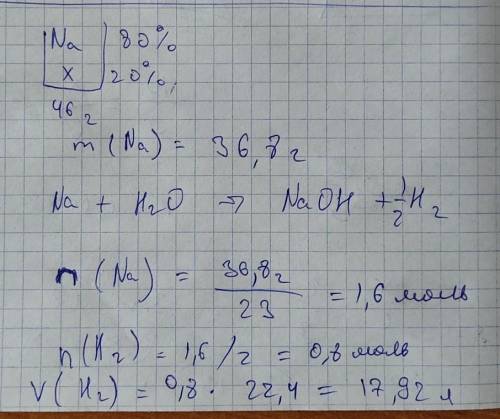 Na 80%
x 20%
46 г
m (Na) = 36,8 г
Na + H2O → NaOH + 1/2 H2
n (Na) = 36,8 г / 23 = 1,6 моль
n(H2) = 1,6 / 2 = 0,8 моль
V(H2) = 0,8 · 22,4 = 17,92 л